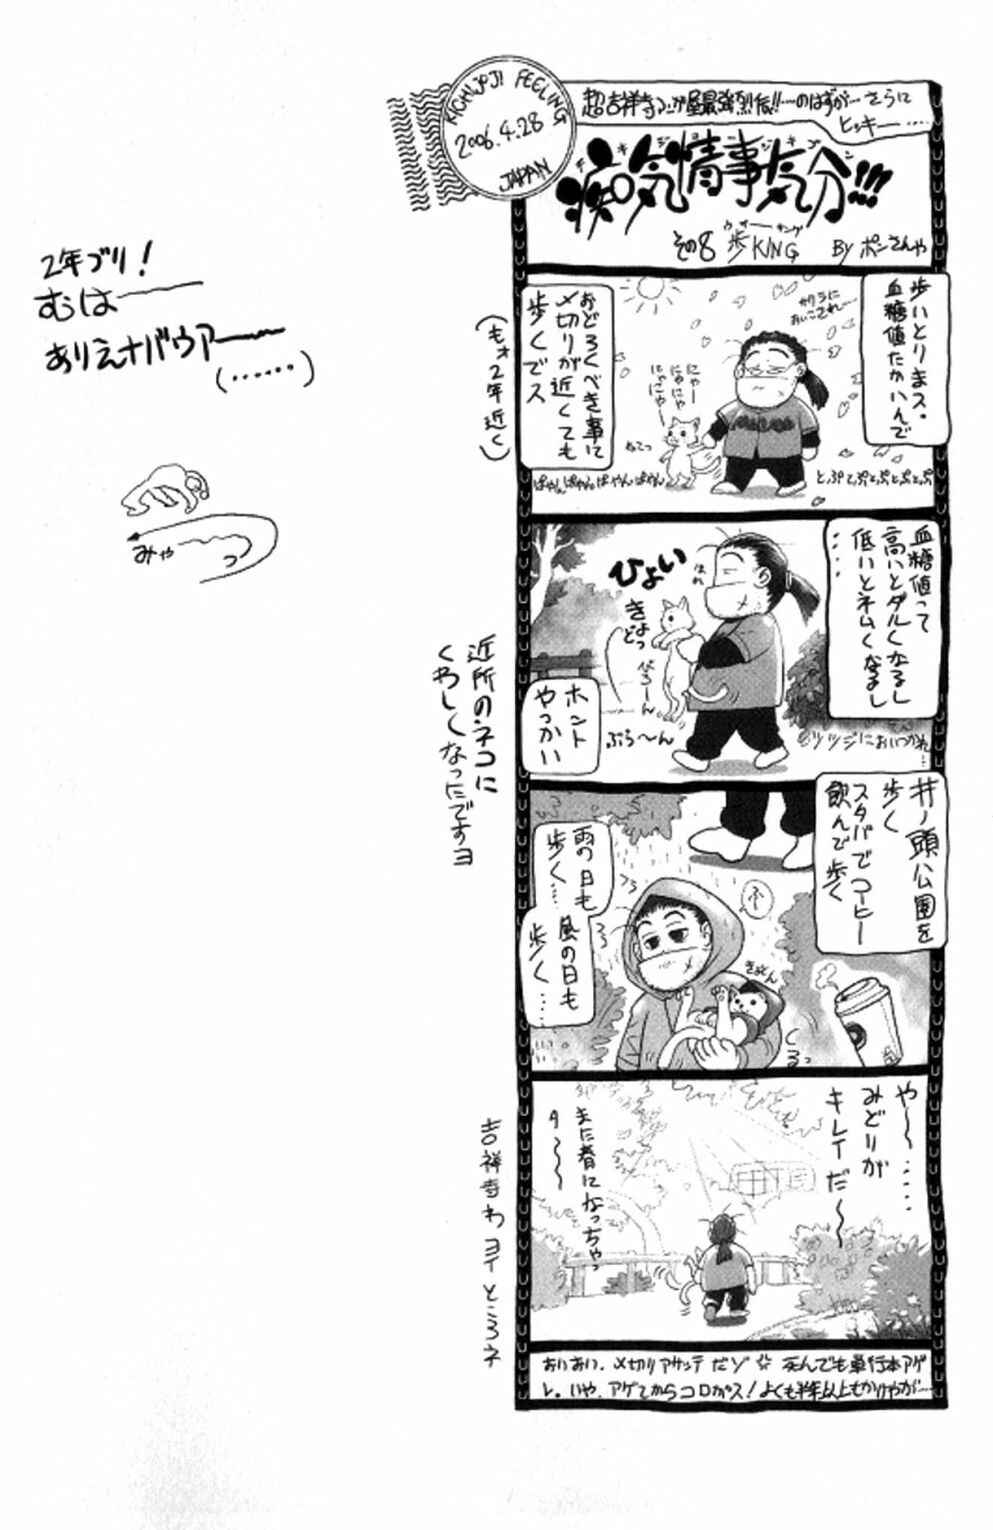 KICHIJOJI FEELING
2006.4.28
JAPAN
超吉祥寺マンガ屋最強烈伝!!…のはずが…さらに
ヒッキー……
病気情事気分!!!
その8 歩KING
ウォーキング
By ポンさんや
歩いとりまス。
血糖値たかいんで
サクラに
おいこされ…
おどろくべき事に
〆切りが近くても
歩くでス
(もォ2年近く)
にゃー
にゃにゃ
にゃにゃー
ねこっ
ぱやんぱやんぱやんぱやん
とぷとぷとぷとぷとぷ
血糖値って
高いとダルくなるし
低いとネムくなるし
……
ひょい
はれ
きょとっ
ぶら〜ん
ホント
やっかい
ツツジにおいつかれ…
近所のネコに
くわしくなったですヨ
井ノ頭公園を
歩く
スタバでコーヒー
飲んで歩く
雨の日も
歩く…
風の日も
歩く……
ふ
きょとん
や〜……
みどりが
キレイだ〜
また春になっちゃっ
タ〜〜
吉祥寺わヨイところネ
おいおい、〆切りアサッテだゾ☆ 死んでも単行本アゲ
レ。いや、アゲてからコロがス!よくも半年以上もかけやが…
2年ブリ!
むは——
ありえナバウアー——
(……)
みゃ〜〜っ